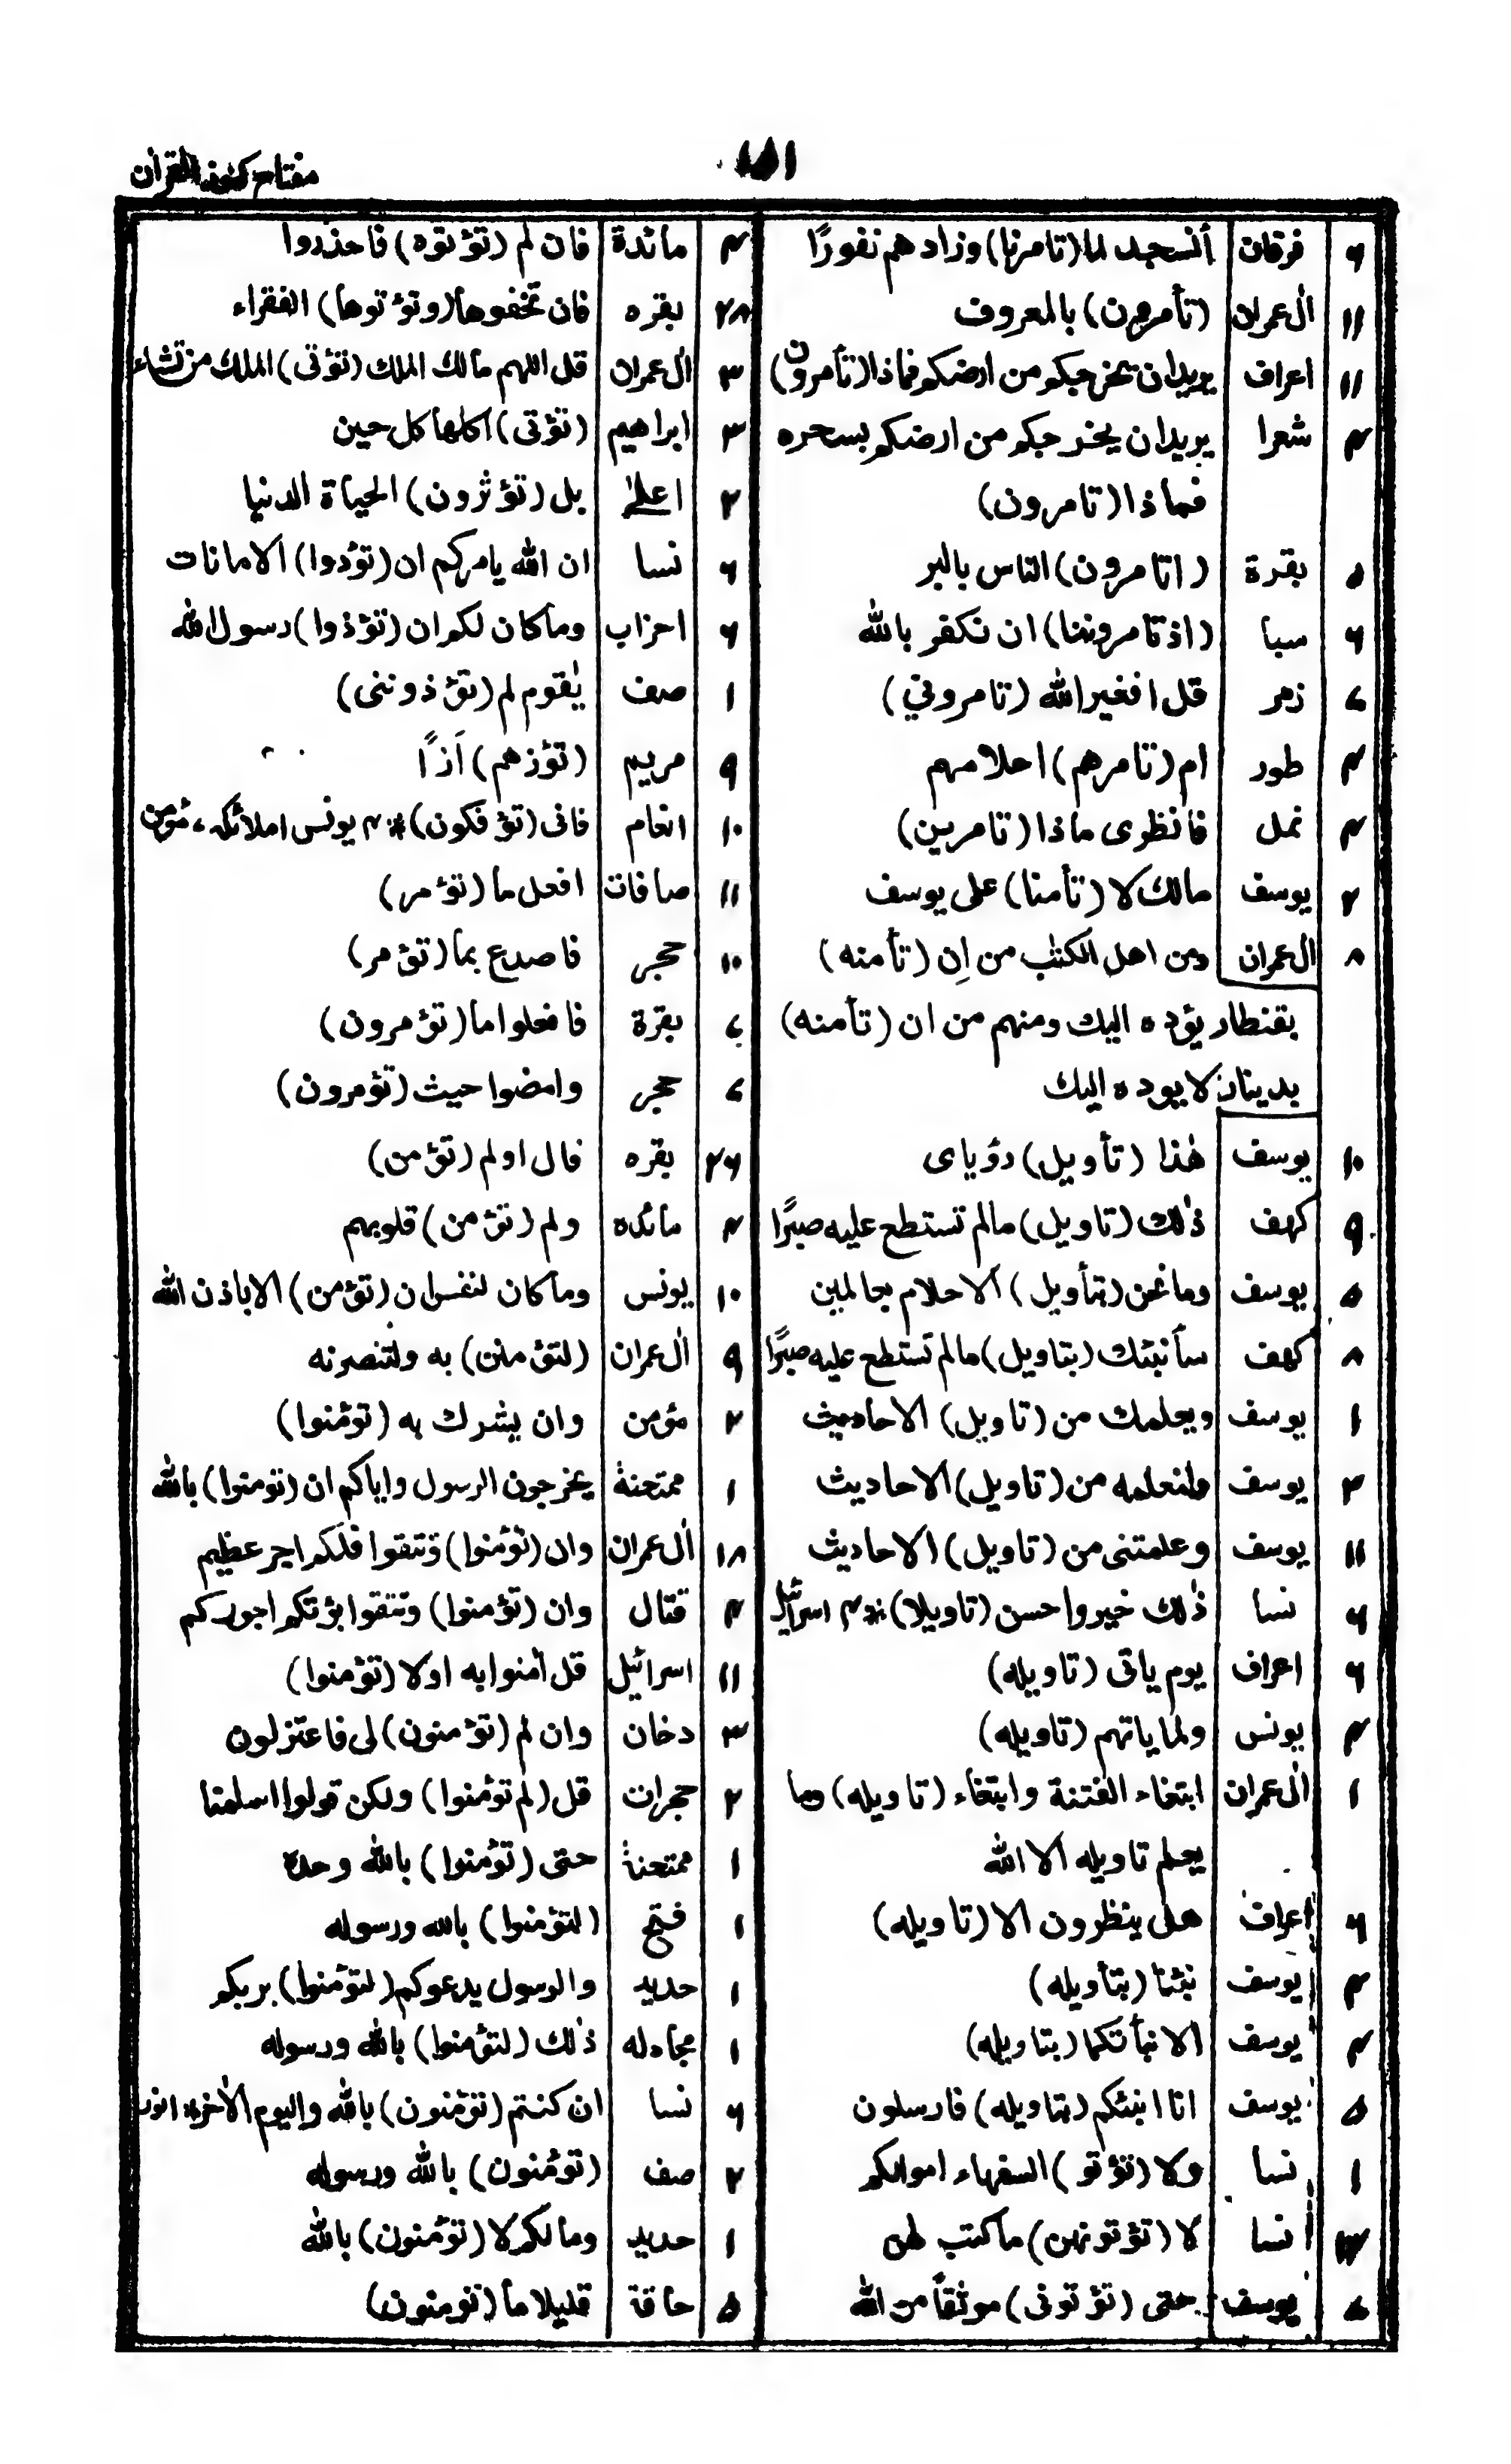 مفتاح کنوز القرآن
۱۵۱
۶ فرقان أنسجد لما (تامرنا) وزادهم نفورًا
۱۱ اٰل عمران (تأمرون) بالمعروف
۱۱ اعراف یریدان یخرجکم من ارضکم فماذا (تأمرون)
۳ شعرا یریدان یخرجکم من ارضکم بسحره
فماذا (تامرون)
۵ بقرة (اتامرون) الناس بالبر
۴ سبا (اذ تامروننا) ان نکفر بالله
۷ زمر قل افغیر الله (تامرونی)
۲ طور ام (تامرهم) احلامهم
۲ نمل فانظری ماذا (تامرین)
۲ یوسف مالك لا (تأمنا) علی یوسف
۸ اٰل عمران ومن اهل الکتٰب من اِن (تأمنه)
بقنطار یؤده الیك ومنهم من ان (تأمنه)
بدینار لا یوده الیك
۱۰ یوسف هٰذا (تأویل) رؤیای
۹ کهف ذٰلك (تاویل) مالم تستطع علیه صبرًا
۵ یوسف وما نحن (بتأویل) الاحلام بعالمین
۸ کهف سأنبئك (بتاویل) مالم تستطع علیه صبرًا
۱ یوسف ویعلمك من (تاویل) الاحادیث
۳ یوسف ولنعلمه من (تاویل) الاحادیث
۱۱ یوسف وعلمتنی من (تاویل) الاحادیث
نسا ذٰلك خیر واحسن (تاویلا) ۴ اسرائیل
۶ اعراف یوم یاتی (تاویله)
۴ یونس ولما یاتهم (تاویله)
۱ اٰل عمران ابتغاء الفتنة وابتغاء (تاویله) وما
یعلم تاویله الا الله
۶ اعراف هل ینظرون الا (تاویله)
یوسف نبئنا (بتأویله)
یوسف الا نبأتکما (بتاویله)
۵ یوسف انا انبئکم (بتاویله) فارسلون
۱ نسا ولا (تؤتو) السفهاء اموالکم
نسا لا (تؤتونهن) ما کتب لهن
یوسف حتی (تؤتونی) موثقاً من الله
مائدة فان لم (تؤتوه) فاحذروا
بقره فان تخفوها (وتؤتوها) الفقراء
۳ اٰل عمران قل اللهم مالك الملك (تؤتی) الملك من تشاء
۳ ابراهیم (تؤتی) اکلها کل حین
۲ اعلیٰ بل (تؤثرون) الحیاة الدنیا
نسا ان الله یامرکم ان (تؤدوا) الامانات
احزاب وماکان لکم ان (تؤذوا) رسول الله
۱ صف یٰقوم لم (تؤذوننی)
مریم (تؤزهم) اَزًّا
۱۰ انعام فانی (تؤفکون) ۴ یونس املائکه، مؤمن
۱۱ صافات افعل ما (تؤمر)
۱۰ حجر فاصدع بما (تؤمر)
بقرة فافعلوا ما (تؤمرون)
حجر وامضوا حیث (تؤمرون)
بقره قال اولم (تؤمن)
مائده ولم (تؤمن) قلوبهم
۱۰ یونس وما کان لنفس ان (تؤمن) الا باذن الله
۹ اٰل عمران (لتؤمنن) به ولتنصرنه
۲ مؤمن وان یشرك به (تؤمنوا)
۱ ممتحنة یخرجون الرسول وایاکم ان (تؤمنوا) بالله
۱۸ اٰل عمران وان (تؤمنوا) وتتقوا فلکم اجر عظیم
۴ قتال وان (تؤمنوا) وتتقوا یؤتکم اجورکم
۱۱ اسرائیل قل اٰمنوا به اولا (تؤمنوا)
دخان وان لم (تؤمنون) لی فاعتزلون
۲ حجرات قل (لم تؤمنوا) ولکن قولوا اسلمنا
۱ ممتحنة حتی (تؤمنوا) بالله وحده
۱ فتح (لتؤمنوا) بالله ورسوله
۱ حدید والرسول یدعوکم (لتؤمنوا) بربکم
۱ مجادله ذٰلك (لتؤمنوا) بالله ورسوله
نسا ان کنتم (تؤمنون) بالله والیوم الاٰخر
۲ صف (تؤمنون) بالله ورسوله
۱ حدید ومالکم لا (تؤمنون) بالله
۵ حاقة قلیلا ما (تؤمنون)